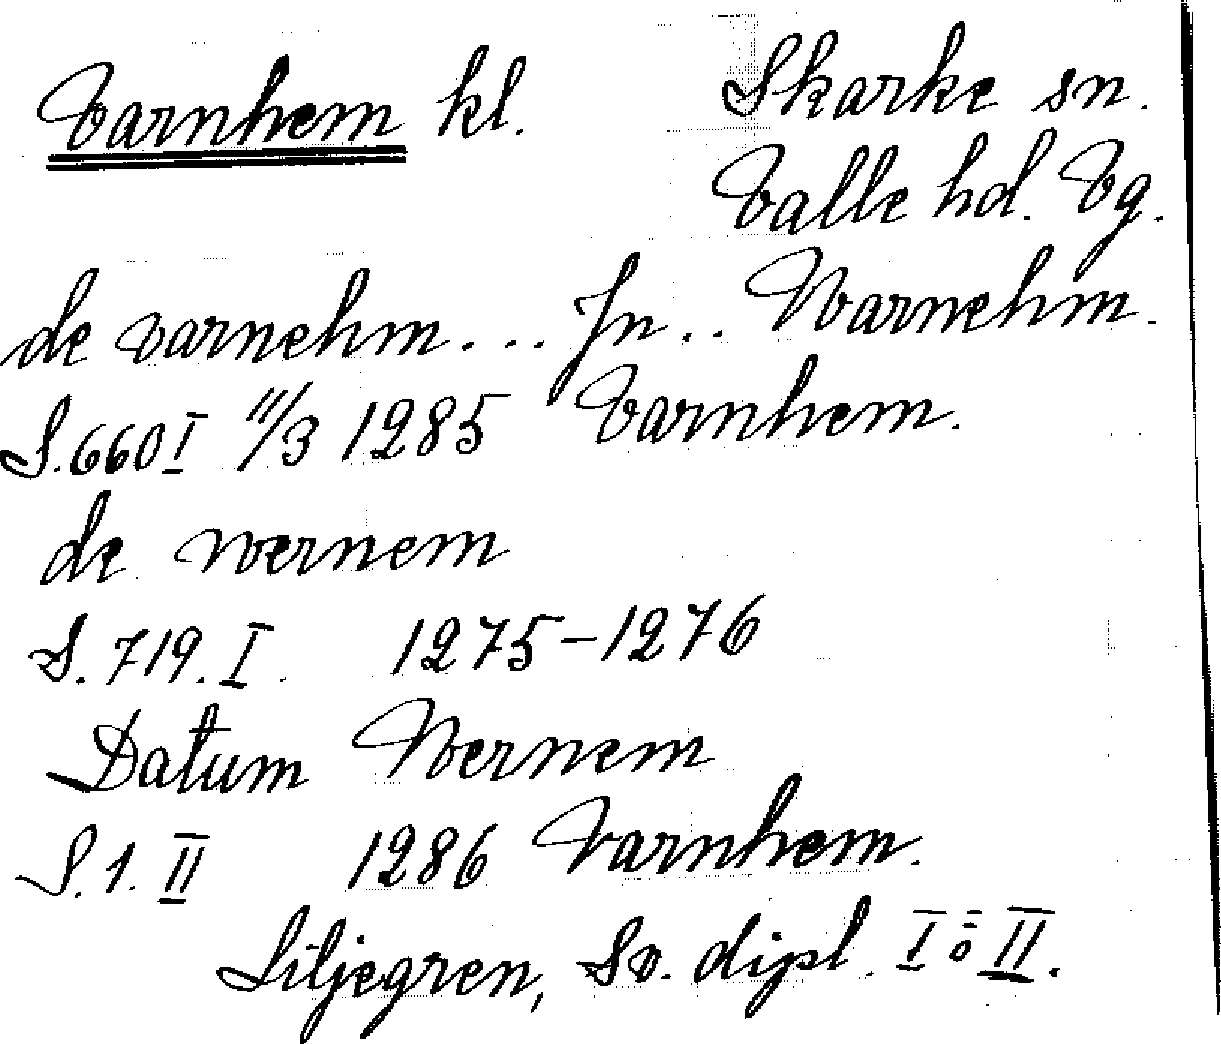 Varnhem kl. Skarke sn.
Valle hd. Vg.
de varnehm... Jn.. Warnehm.
S. 660 I 11/3 1285 Varnhem.
de wernem
S. 719. I. 1275-1276
Datum Wernem
S. 1. II 1286 Varnhem.
Liljegren, Sv. dipl. I ö II.